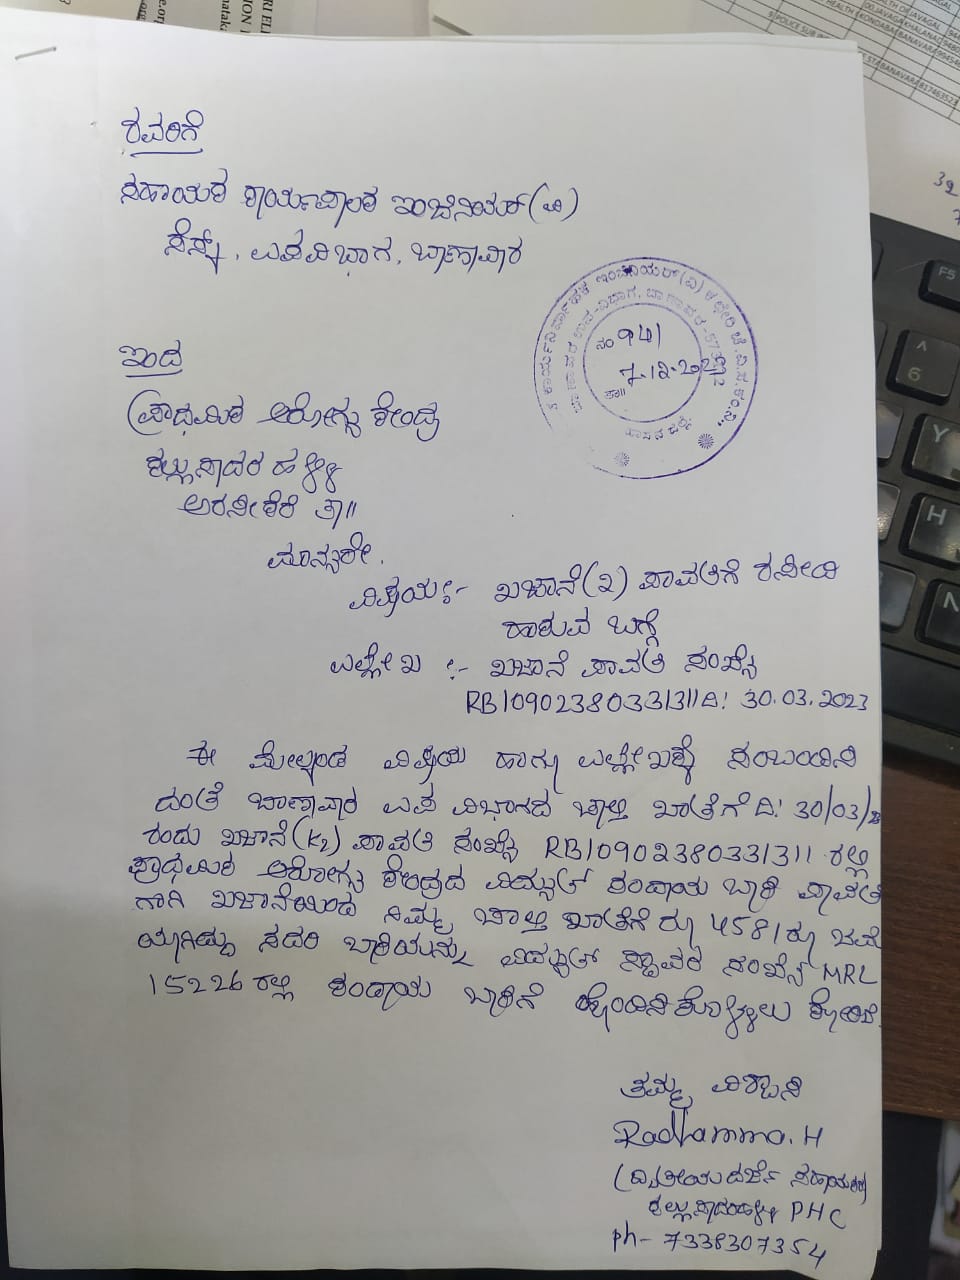 ರವರಿಗೆ
ಸಹಾಯಕ ಕಾರ್ಯಪಾಲಕ ಇಂಜಿನಿಯರ್ (ವಿ)
ಸೆಸ್ಕ್, ಉಪವಿಭಾಗ, ಬಾಣಾವಾರ
ನಂ 941
7-12-2023
ತಾ॥
ಹಾಸನ ಜಿಲ್ಲೆ
ಇಂದ
ಪ್ರಾಥಮಿಕ ಆರೋಗ್ಯ ಕೇಂದ್ರ
ಕಲ್ಲುಸಾದರಹಳ್ಳಿ
ಅರಸೀಕೆರೆ ತಾ॥
ಮಾನ್ಯರೇ,
ವಿಷಯ:- ಖಜಾನೆ(2) ಪಾವತಿಗೆ ರಸೀದಿ
ಹಾಕುವ ಬಗ್ಗೆ
ಉಲ್ಲೇಖ :- ಖಜಾನೆ ಪಾವತಿ ಸಂಖ್ಯೆ
RB10902380331311 ದಿ: 30.03.2023
ಈ ಮೇಲ್ಕಂಡ ವಿಷಯ ಹಾಗೂ ಉಲ್ಲೇಖಕ್ಕೆ ಸಂಬಂಧಿಸಿ
ದಂತೆ ಬಾಣಾವಾರ ಉಪ ವಿಭಾಗದ ಚಾಲ್ತಿ ಖಾತೆಗೆ ದಿ: 30/03/23
ರಂದು ಖಜಾನೆ(K2) ಪಾವತಿ ಸಂಖ್ಯೆ RB10902380331311 ರಲ್ಲಿ
ಪ್ರಾಥಮಿಕ ಆರೋಗ್ಯ ಕೇಂದ್ರದ ವಿದ್ಯುತ್ ಕಂದಾಯ ಬಾಕಿ ಪಾವತಿ
ಗಾಗಿ ಖಜಾನೆಯಿಂದ ನಿಮ್ಮ ಚಾಲ್ತಿ ಖಾತೆಗೆ ರೂ 4581 ರೂ ಜಮೆ
ಯಾಗಿದ್ದು ಸದರಿ ಬಾಕಿಯನ್ನು ವಿದ್ಯುತ್ ಸ್ಥಾವರ ಸಂಖ್ಯೆ MRL
15226 ರಲ್ಲಿ ಕಂದಾಯ ಬಾಕಿಗೆ ಹೊಂದಿಸಿಕೊಳ್ಳಲು ಕೋರಿದೆ.
ತಮ್ಮ ವಿಶ್ವಾಸಿ
Radhamma. H
(ದ್ವಿತೀಯ ದರ್ಜೆ ಸಹಾಯಕರು)
ಕಲ್ಲುಸಾದರಹಳ್ಳಿ PHC
ph- 7338307354